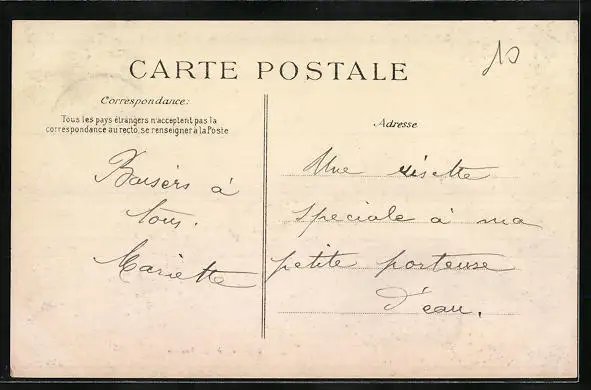 10
CARTE POSTALE
Correspondance:
Tous les pays étrangers n'acceptent pas la
correspondance au recto, se renseigner à la Poste
Baisérs à
tous.
Mariette
Adresse
Une risette
spéciale à ma
petite porteuse
d'eau.